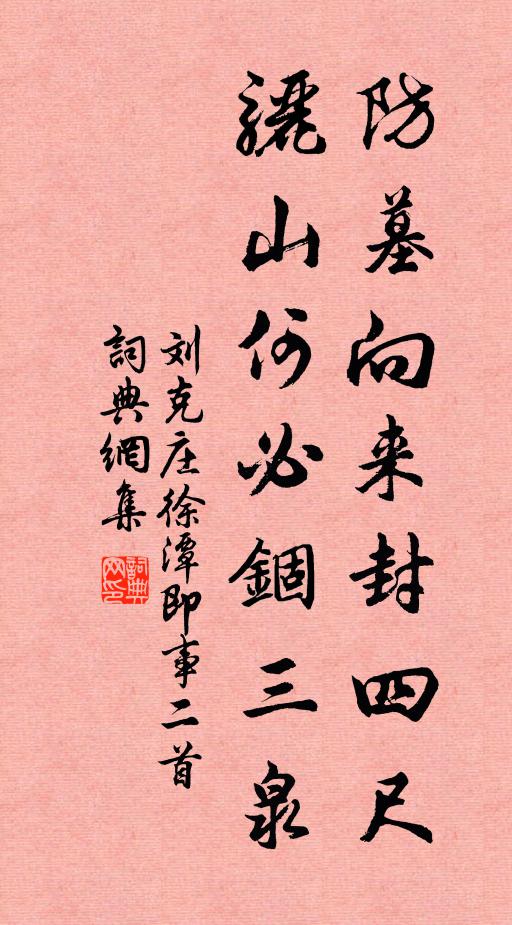 防墓向来封四尺
骊山何必錮三泉
刘克庄徐潭即事二首
詞典網集
詞典网印